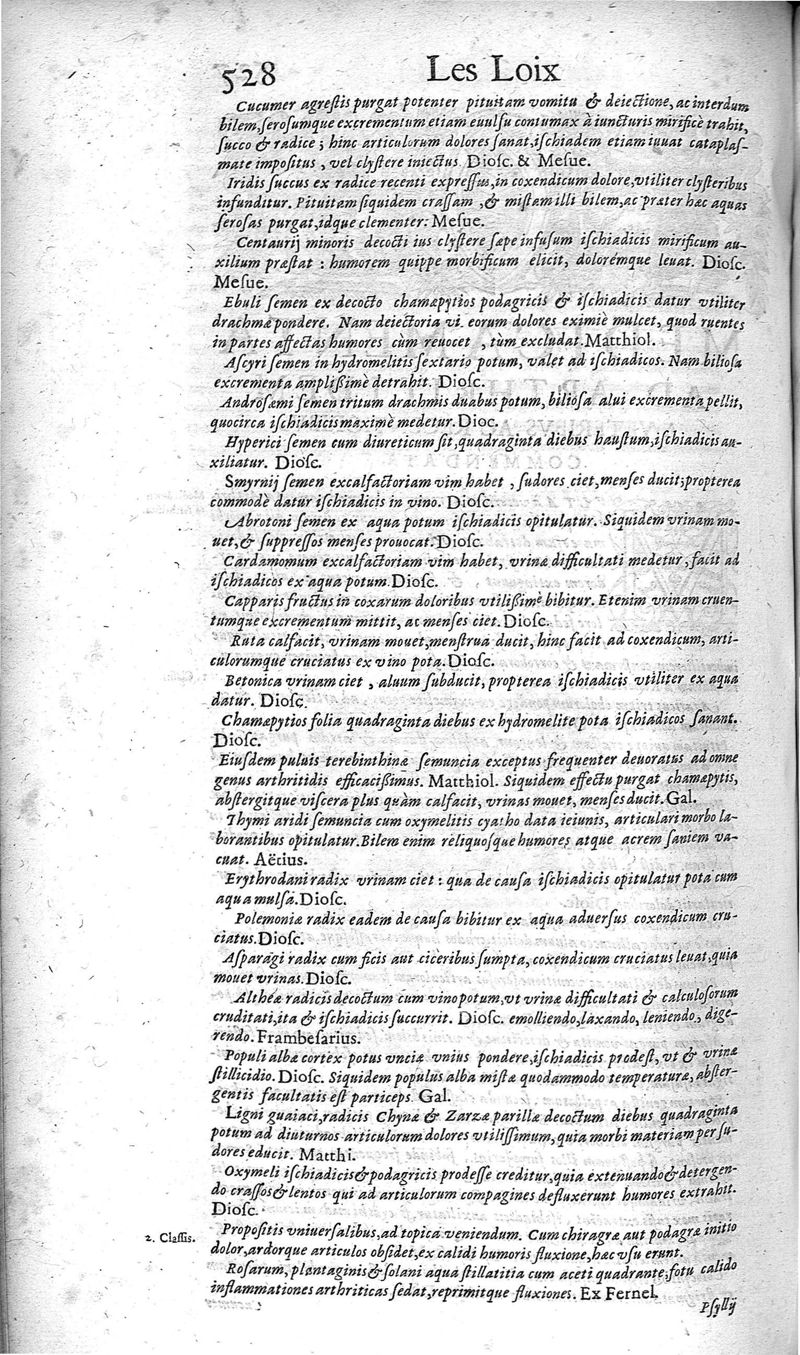 528 Les Loix
Cucumer agreſtis purgat potenter pituitam vomitu & deiectione, ac interdum
bilem, ſeroſumque excrementum etiam euulſu contumax à iuncturis mirificè trahit,
ſucco & radice; hinc articulorum dolores ſanat, iſchiadem etiam iuuat cataplaſ-
mate impoſitus, vel clyſtere iniectus. Dioſc. & Meſue.
Iridis ſuccus ex radice recenti expreſſus, in coxendicum dolore, vtiliter clyſteribus
infunditur. Pituitam ſiquidem craſſam, & miſtam illi bilem, ac præter hæc aquas
ſeroſas purgat, idque clementer: Meſue.
Centaurij minoris decocti ius clyſtere ſæpe infuſum iſchiadicis mirificum au-
xilium præſtat: humorem quippe morbificum elicit, dolorémque leuat. Dioſc.
Meſue.
Ebuli ſemen ex decocto chamæpytios podagricis & iſchiadicis datur vtiliter
drachmæ pondere. Nam deiectoria vi eorum dolores eximiè mulcet, quod ruentes
in partes affectas humores cùm reuocet, tùm excludat. Matthiol.
Aſcyri ſemen in hydromelitis ſextario potum, valet ad iſchiadicos. Nam bilioſa
excrementa ampliſſimè detrahit. Dioſc.
Androſæmi ſemen tritum drachmis duabus potum, bilioſa alui excrementa pellit,
quocirca iſchiadicis maximè medetur. Dioc.
Hyperici ſemen cum diureticum ſit, quadraginta diebus hauſtum, iſchiadicis au-
xiliatur. Dioſc.
Smyrnij ſemen excalfactoriam vim habet, ſudores ciet, menſes ducit; propterea
commodè datur iſchiadicis in vino. Dioſc.
Abrotoni ſemen ex aqua potum iſchiadicis opitulatur. Siquidem vrinam mo-
uet, & ſuppreſſos menſes prouocat. Dioſc.
Cardamomum excalfactoriam vim habet, vrinæ difficultati medetur, facit ad
iſchiadicos ex aqua potum. Dioſc.
Capparis fructus in coxarum doloribus vtiliſſimè bibitur. Etenim vrinam cruen-
tumque excrementum mittit, ac menſes ciet. Dioſc.
Ruta calfacit, vrinam mouet, menſtrua ducit, hinc facit ad coxendicum, arti-
culorumque cruciatus ex vino pota. Dioſc.
Betonica vrinam ciet, aluum ſubducit, propterea iſchiadicis vtiliter ex aqua
datur. Dioſc.
Chamæpytios folia quadraginta diebus ex hydromelite pota iſchiadicos ſanant.
Dioſc.
Eiuſdem puluis terebinthinæ ſemuncia exceptus frequenter deuoratus ad omne
genus arthritidis efficaciſſimus. Matthiol. Siquidem effectu purgat chamæpytis,
abſtergitque viſcera plus quàm calfacit, vrinas mouet, menſes ducit. Gal.
Thymi aridi ſemuncia cum oxymelitis cyatho data ieiunis, articulari morbo la-
borantibus opitulatur. Bilem enim reliquoſque humores atque acrem ſaniem va-
cuat. Aëtius.
Erythrodani radix vrinam ciet: qua de cauſa iſchiadicis opitulatur pota cum
aqua mulſa. Dioſc.
Polemoniæ radix eadem de cauſa bibitur ex aqua aduerſus coxendicum cru-
ciatus. Dioſc.
Aſparagi radix cum ficis aut ciceribus ſumpta, coxendicum cruciatus leuat, quia
mouet vrinas. Dioſc.
Altheæ radicis decoctum cum vino potum, vt vrinæ difficultati & calculoſorum
cruditati, ita & iſchiadicis ſuccurrit. Dioſc. emolliendo, laxando, leniendo, dige-
rendo. Frambeſarius.
Populi albæ cortex potus vnciæ vnius pondere, iſchiadicis prodeſt, vt & vrinæ
ſtillicidio. Dioſc. Siquidem populus alba miſtæ quodammodo temperaturæ, abſter-
gentis facultatis eſt particeps. Gal.
Ligni guaiaci, radicis Chynæ & Zarzæ parillæ decoctum diebus quadraginta
potum ad diuturnos articulorum dolores vtiliſſimum, quia morbi materiam per ſu-
dores educit. Matthi.
Oxymeli iſchiadicis & podagricis prodeſſe creditur, quia extenuando & detergen-
do craſſos & lentos qui ad articulorum compagines defluxerunt humores extrahit.
Dioſc.
2. Claſſis. Propoſitis vniuerſalibus, ad topica veniendum. Cum chiragræ aut podagræ initio
dolor, ardorque articulos obſidet, ex calidi humoris fluxione, hæc vſu erunt.
Roſarum, plantaginis & ſolani aqua ſtillatitia cum aceti quadrante, fotu calido
inflammationes arthriticas ſedat, reprimitque fluxiones. Ex Fernel.
Pſyllij